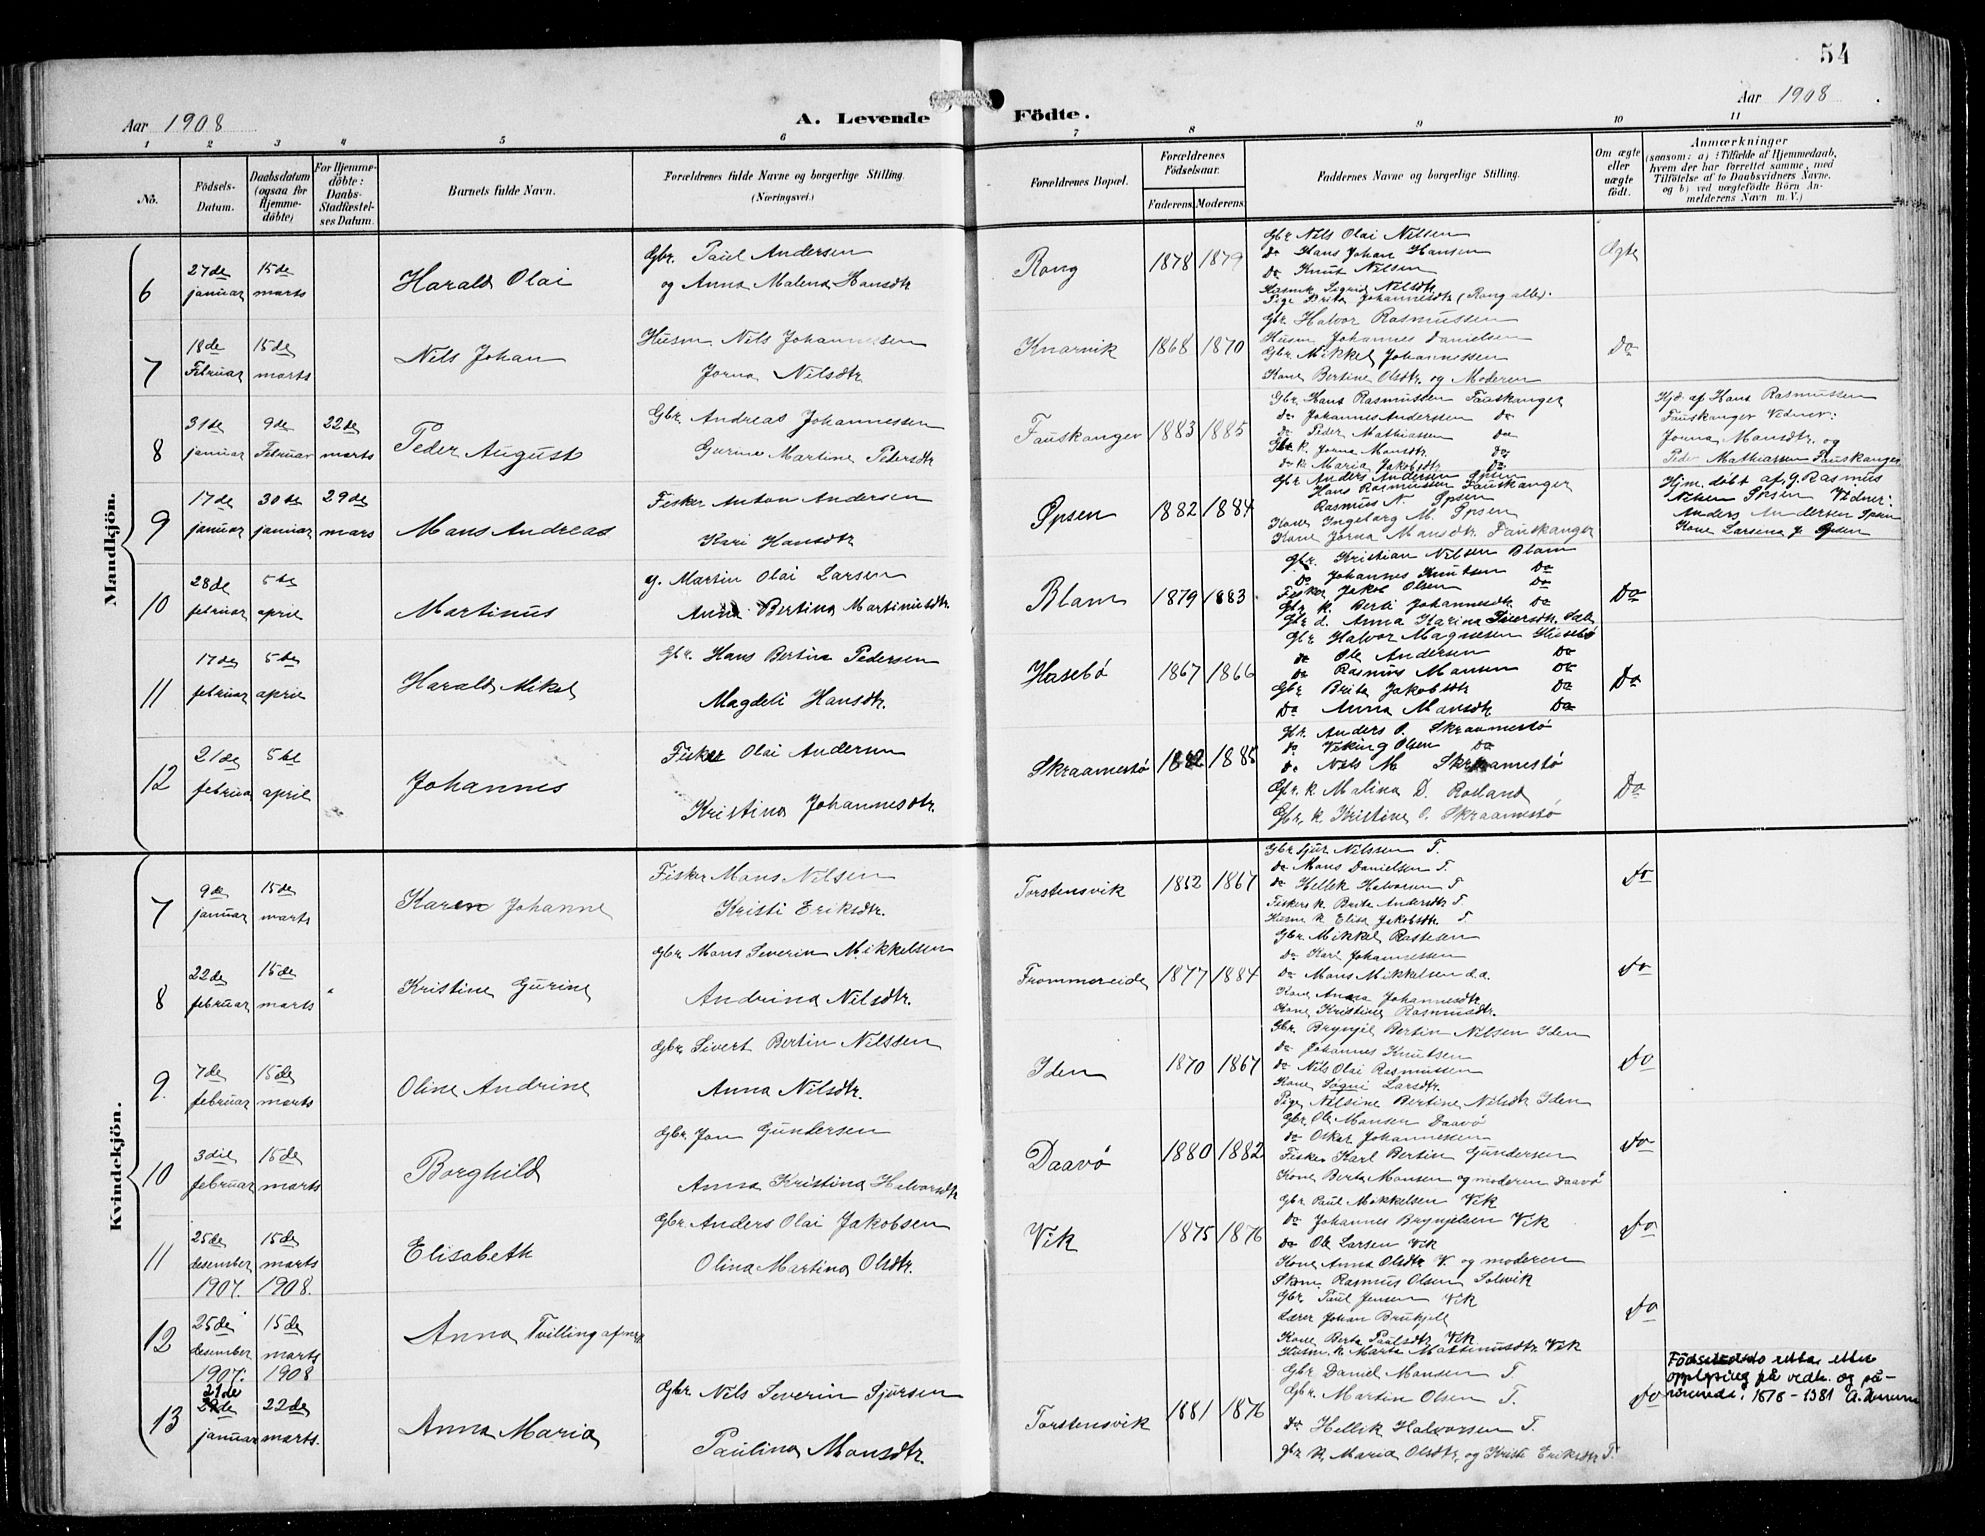 54
Aar 1908
A. Levende Födte.
Aar 1908
1 2 3 4 5 6 7 8 9 10 11
No.
Födsels-Datum.
Daabsdatum (ogsaa for Hjemmedöbte)
For Hjemmedöbte: Daabs-Stadfæstelses Datum.
Barnets fulde Navn.
Forældrenes fulde Navne og borgerlige Stilling.
(Næringsvei.)
Forældrenes Bopæl.
Forældrenes Födselsaar.
Faderens. Moderens.
Faddernes Navne og borgerlige Stilling.
Om ægte eller uægte födt.
Anmærkninger
(saasom: a) i Tilfælde af Hjemmedaab, hvem der har forrettet samme, med Tilföielse af to Daabsvidners Navne, og b) ved uægtefödte Börn Anmelderens Navn m. V.)
Mandkjön.
6 27de januar 15de marts Harald Olai
Gbr. Paul Andersen
og Anna Malena Hansdtr
Rong 1878 1879
Gbr Nils Olai Nilsen
do Hans Johan Hansen
do Knut Nilsen
Sigrid Nilsdtr
Pige Brita Johannesdtr (Rong alle).
Ægte
7 18de Februar 15de marts Nils Johan
Husm Nils Johannessen
Jorna Nilsdtr
Knarvik 1868 1870
Gbr Halvor Rasmussen
Husm Johannes Danielsen
Gbr Mikkel Johannessen
Kone Bertine Olsdtr og Moderen
Do
8 31de januar 9de Februar 22de marts Peder August
Gbr Andreas Johannessen
Gurine Martine Pedersdtr
Fauskanger 1883 1885
Gbr. Hans Rasmussen Fauskanger
do Johannes Anderssen do
do Peder Mathiassen do
Gbr k. Jorna Monsdtr do
do k. Maria Jakobsdtr Do
Hjd af Hans Rasmussen
Fauskanger Vidner:
Jorna Monsdtr og
Peder Mathiassen Fauskanger
9 17de januar 30te januar 29de mars Mons Andreas
Fisker Anton Andersen
Kari Hansdtr
Øpsen 1882 1884
Gbr Anders Andersen Øpsen
Hans Rasmussen Fauskanger
Rasmus N Øpsen
Kone Ingeborg M. Øpsen
Kone Jorna Monsdtr Fauskanger
Hjm. döbt af G. Rasmus
Nilsen Øpsen Vidner:
Anders Andersen Øpsen
Kone Larsena J Øpsen
10 28de februar 5te april Martinus
g. Martin Olai Larsen
Anna Bertina Martinusdtr.
Blom 1879 1883
Gbr. Kristian Nilsen Blom
Do Johannes Knutsen Do
Fisker Jakob Olsen Do
Gbr k. Berti Johannesdtr Do
Gbr d. Anna Karina Siversdtr.
Do
11 17de februar 5te april Harald Mikal
Gbr. Hans Bertin Pedersen
Magdeli Hansdtr.
Husebö 1867 1866
Gbr Halvor Magnesen Husebö
do Ole Andersen Do
do Rasmus Monsen Do
Gbr Brita Jakobsdtr Do
Do Anna Monsdtr Do
Do
12 21de februar 5te april Johannes
Fisker Olai Andersen
Kristina Johannesdtr.
Skraamestö 1882 1885
Gbr. Anders O. Skraamestö
do Viking Olsen do
do Nils M Skraamestö
Gbr. k Malina D. Rolland
Gbr. k Kristine O. Skraamestö
Do
Kvindekjön.
7 9de januar 15de marts Karen Johanne
Fisker Mons Nilsen
Kristi Eriksdtr.
Torstensvik 1862 1867
Gbr Sjur Nilssen T.
do Mons Danielsen T.
do Hellik Halvorsen T
Fiskers k. Brita Andersdtr T.
Husm k Elisa Jakobsdtr T.
Do
8 22de februar 15de marts Kristine Gurine
Gbr Mons Severin Mikkelsen
Andrina Nilsdtr.
Trommereide 1877 1884
Gbr. Mikkel Rastesen
Do Karl Johannessen
Do Mons Mikkelsen d.a.
Kone Anna Johannesdtr
Kone Kristine Rasmusdtr.
Do
9. 7de februar 15de marts Oline Andrine
Gbr Sivert Bertin Nilssen
Anna Nilsdtr.
Iden 1870 1867
Gbr. Brynjel Bertin Nilsen Iden
do Johannes Knutsen
do Nils Olai Rasmussen
Kone Sögni Larsdtr.
Pige Nilsine Bertine Nilsdtr Iden
Do
10 3die februar 15de marts Borghild
Gbr. Jon Gundersen
Anna Kristina Halvorsdtr
Daavö 1880 1882
Gbr Ole Monsen Daavö
do Oskar Johannessen
Fisker Karl Bertin Gundersen
Kone Berta Monsen og moderen Daavö
Do
11 25de desember 1907. 15de marts 1908. Elisabeth
Gbr Anders Olai Jakobsen
Olina Martina Olsdtr.
Vik 1875 1876
Gbr. Paul Mikkelsen Vik
do Johannes Brynjelsen Vik
Do Ole Larsen Vik
Kone Anna Olsdtr V. og moderen
Do
12 25de desember 1907. 15de marts 1908 Anna Tvilling af
Rasmus Olsen Solvik
Gbr. Paul Jensen Vik
Lærer Johan Brukjell
Kone Berta Paulsdtr Vik
Husm. k Marta Martinusdtr Vik
Do
13 21de januar 22de marts. Anna Maria
Gbr Nils Severin Sjursen
Paulina Monsdtr.
Torstensvik 1881 1876
Gbr Daniel Monsen T.
Gbr. Martin Olsen T.
Do Hellik Halvorssen T.
Gbr k. Maria Olsdtr. og Kristi Eriksdtr T.
Do
rettet etter
opplysing på vedk. og
1878 - 1981